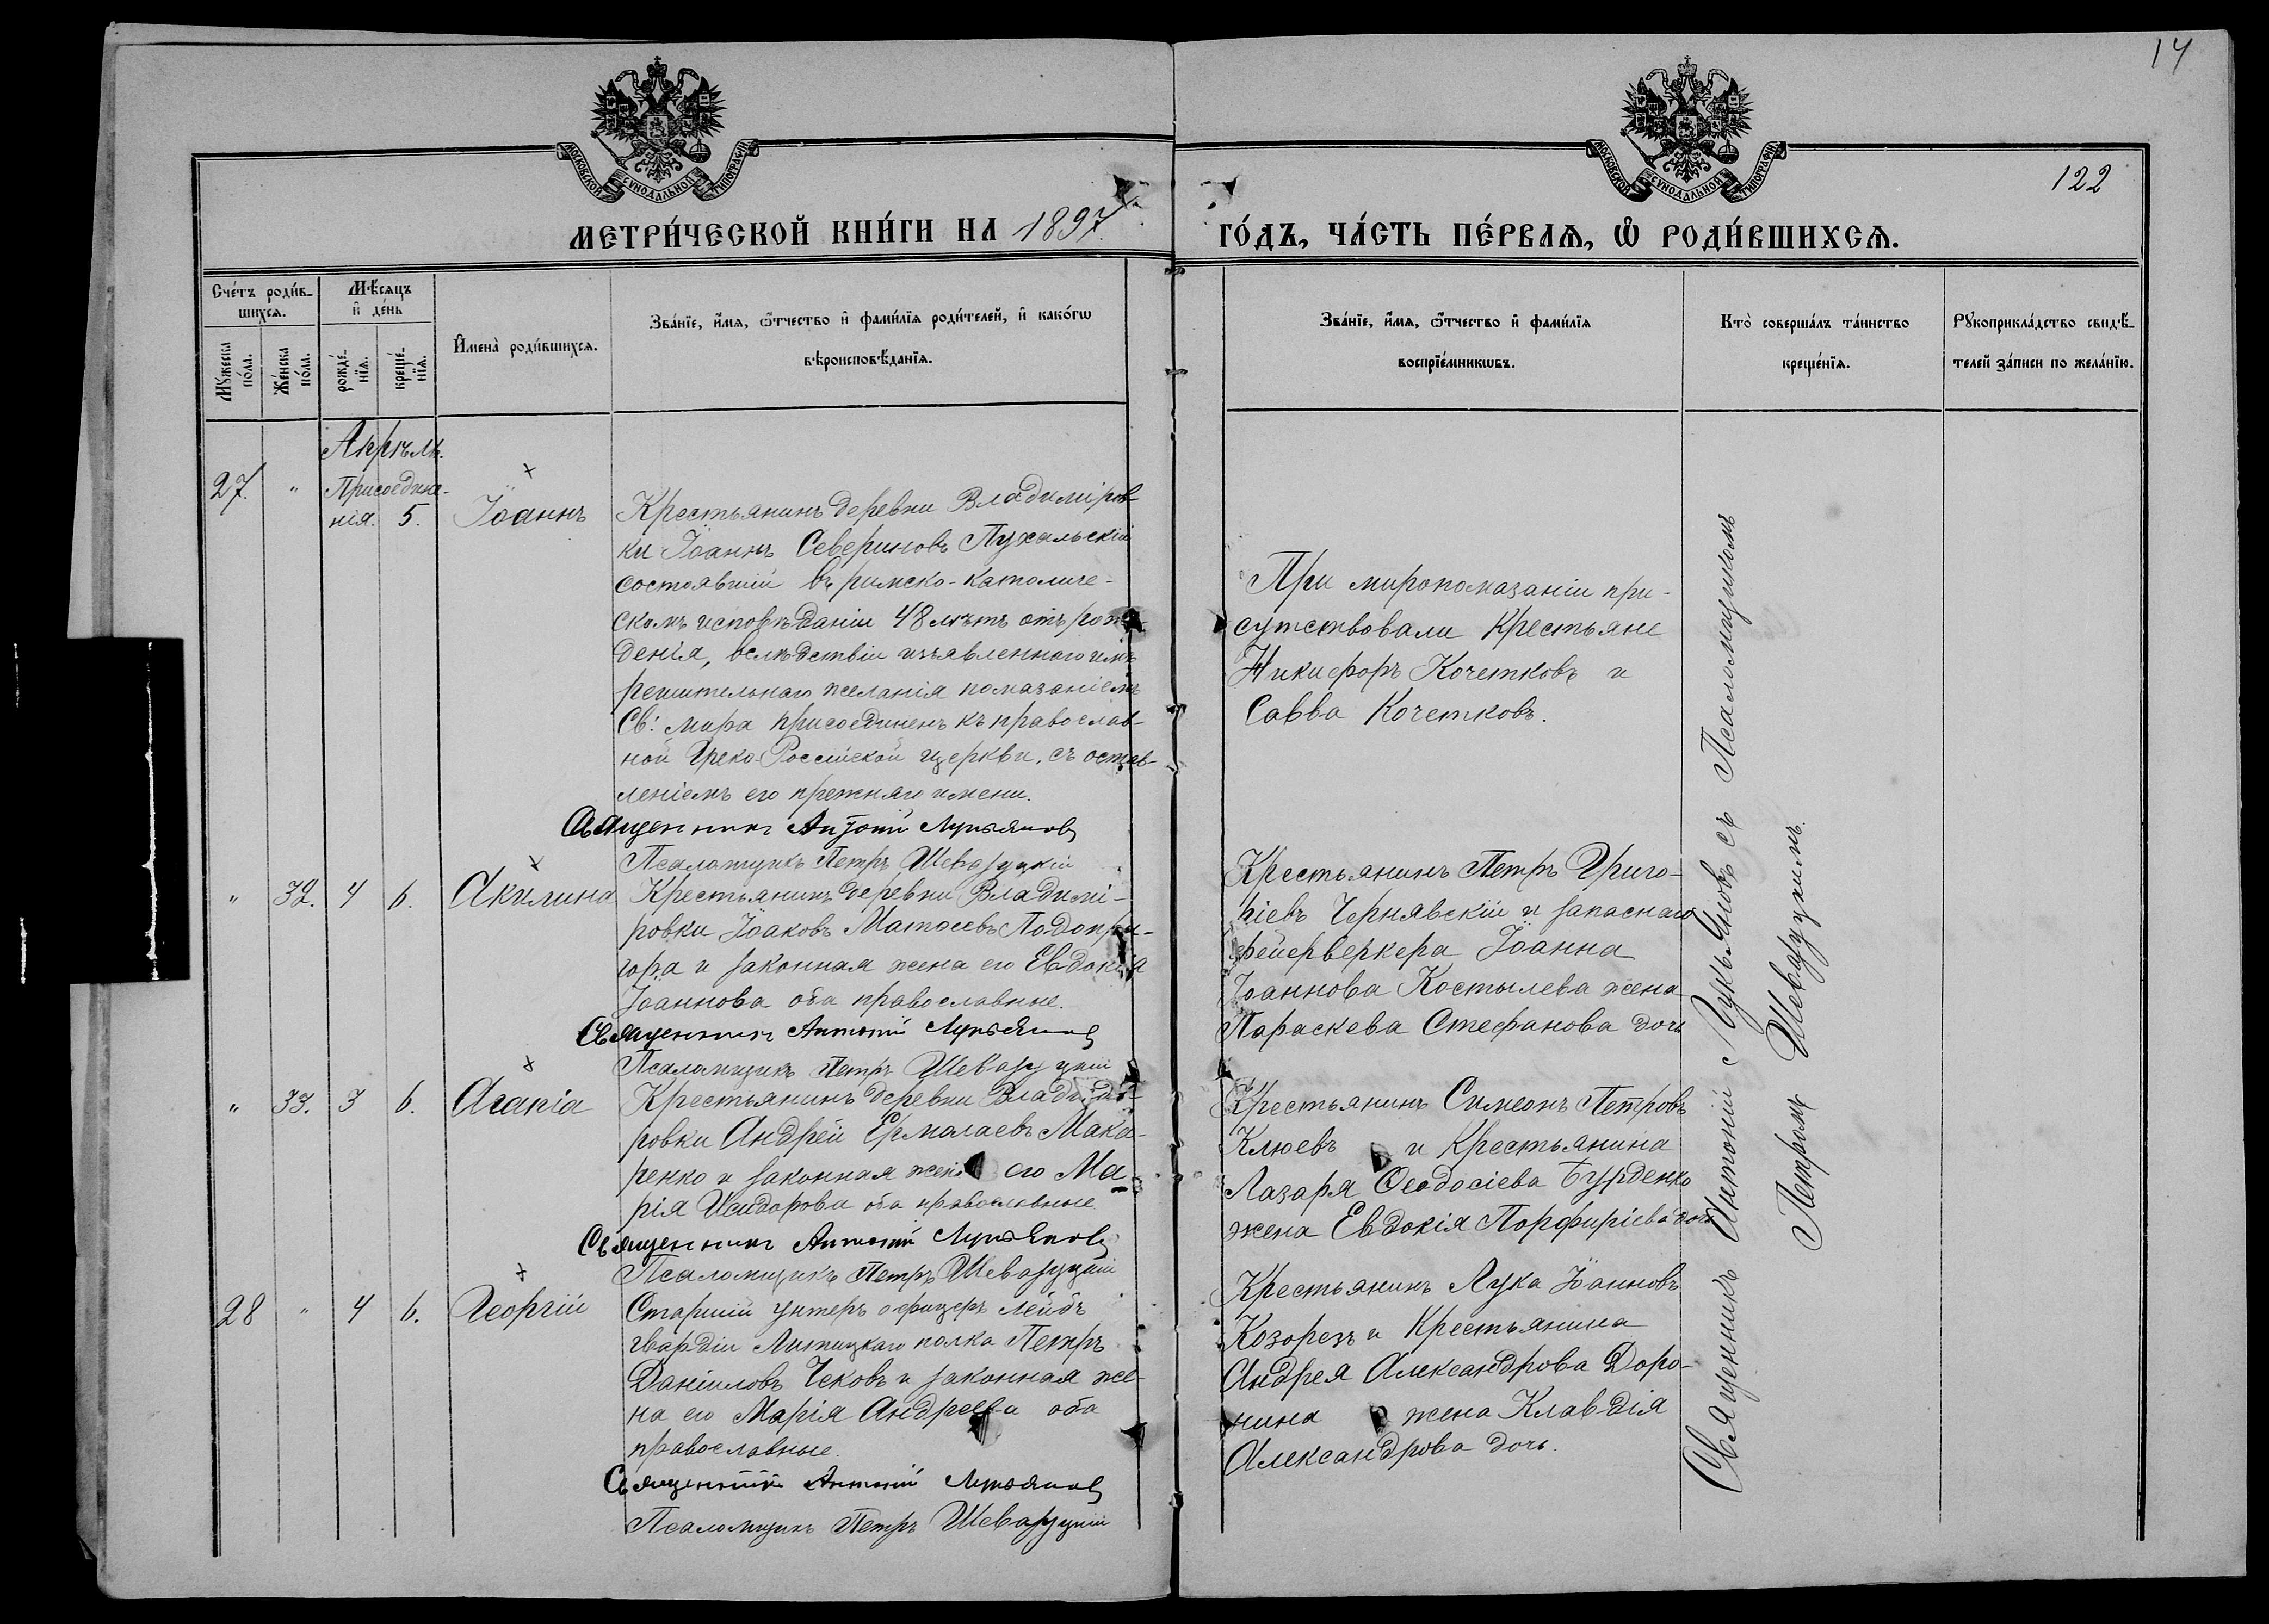 14
122
МОСКОВСКОЙ СѴНОДАЛЬНОЙ ТИПОГРАФІИ
МОСКОВСКОЙ СѴНОДАЛЬНОЙ ТИПОГРАФІИ
МЕТРИ́ЧЕСКОЙ КНИ́ГИ НА 1897 ГО́ДЪ, ЧА́СТЬ ПЕ́РВАѦ, Ѽ РОДИ́ВШИХСѦ.
Сче́тъ роди́в-
шихсѧ.
Мꙋ́жеска по́ла.
Же́нска по́ла.
Мѣ́сѧцъ
и҆ де́нь
рожде́-
нїѧ.
креще́-
нїѧ.
И҆мена̀ роди́вшихсѧ.
Зва́нїе, и҆́мѧ, ѻ҆́тчество и҆ фами́лїѧ роди́телей, и҆ како́гѡ
вѣроисповѣ́данїѧ.
Зва́нїе, и҆́мѧ, ѻ҆́тчество и҆ фами́лїѧ
воспрїе́мникѡвъ.
Кто̀ соверша́лъ та́инство
креще́нїѧ.
Рꙋкоприкла́дство свидѣ́-
телей за́писи по жела́нїю.
Апрѣль.
27. " Присоедине-
нія. 5. Іоаннъ
Крестьянинъ деревни Владиміров-
ки Іоаннъ Севериновъ Пухальскій
состоявшій въ римско-католиче-
скомъ исповѣданіи 48 лѣтъ отъ рож-
денія, вслѣдствіи изъявленнаго имъ
решительнаго желанія помазаніемъ
Св: мира присоединенъ къ православ-
ной Греко-Россійской церкви, съ остав-
леніемъ его прежняго имени.
Священникъ Антоній Лукьяновъ
Псаломщикъ Петръ Шевазуцкій
При миропомазаніи при-
сутствовали Крестьяне
Никифоръ Кочетковъ и
Савва Кочетковъ.
" 32. 4 6. Акилина
Крестьянинъ деревни Владимі-
ровки Іоаковъ Матѳеевъ Подопри-
гора и законная жена его Евдокія
Іоаннова оба православные.
Священникъ Антоній Лукьяновъ
Псаломщикъ Петръ Шевазуцкій
Крестьянинъ Петръ Григо-
ріевъ Чернявскій и запаснаго
фейерверкера Іоанна
Іоаннова Костылева жена
Параскева Стефанова дочь
" 33. 3 6. Агапіа
Крестьянинъ деревни Владимі-
ровки Андрей Ермолаевъ Мака-
ренко и законная жена его Ма-
рія Исидорова оба православные
Священникъ Антоній Лукьяновъ
Псаломщикъ Петръ Шевазуцкій
Крестьянинъ Симеонъ Петровъ
Клюевъ и Крестьянина
Лазаря Ѳеодосіева Бурденко
жена Евдокія Порфиріева дочь
28 " 4 6. Георгій
Старшій унтеръ офицеръ лейбъ
гвардіи полка Петръ
Даніиловъ Чековъ и законная же-
на его Марія Андреева оба
православные.
Священникъ Антоній Лукьяновъ
Псаломщикъ Петръ Шевазуцкій
Крестьянинъ Лука Іоанновъ
Козорезъ и Крестьянина
Андрея Александрова Доро-
нина жена Клавдія
Александрова дочь.
Священникъ Антоній Лукьяновъ съ Псаломщикомъ
Петромъ Шевазуцкимъ.